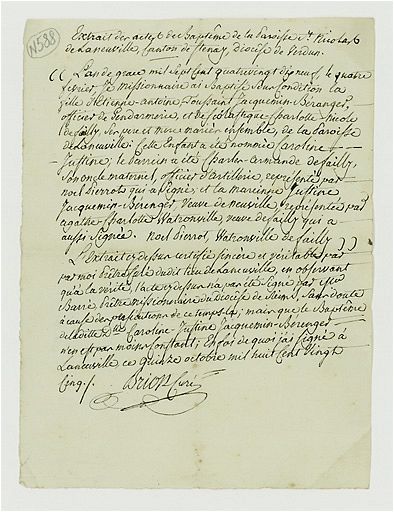 N588
Extrait des actes de Baptême de la Paroisse St. Nicolas
de Laneuville, Canton de Stenay, Diocèse de Verdun.
(( L'an de grace mil sept cent quatrevingt dixneuf, le quatre
fevrier, je Missionnaire ai Baptisé sous condition la
fille d'Etienne-antoine toussaint Jacquemin-Beranger,
officier de Gendarmerie, et de Scolastique Charlotte Nicole
de failly, ses pere et mere mariés ensemble, de la Paroisse
de Laneuville. Cette Enfant a été nommée Caroline
Justine; le parrain a été Charles-armande de failly,
son oncle maternel, officier d'artillerie, représenté par
noel pierrot qui a signé; et la marraine Justine
Jacquemin-Berenger veuve de neuville représentée par
agathe Charlotte Watronville, veuve de failly qui a
aussi signée. noel pierrot, Watronville de failly ))
L'Extrait cy dessus certifié sincère et véritable par
par moi prêtre de dudit lieu de Laneuville, en observant
qu'à la vérité, l'acte cy dessus n'a pas été signé par
Barré prêtre missionnaire du Diocèse de Reims, sans doute
à cause des de ce temps là; mais que le Baptême
de ladite Dlle Caroline-Justine Jacquemin-Berenger
n'en est pas moins constant; En foi de quoi j'ai signé à
Laneuville ce quinze octobre mil huit cent vingt
cinq /.
Brion Curé